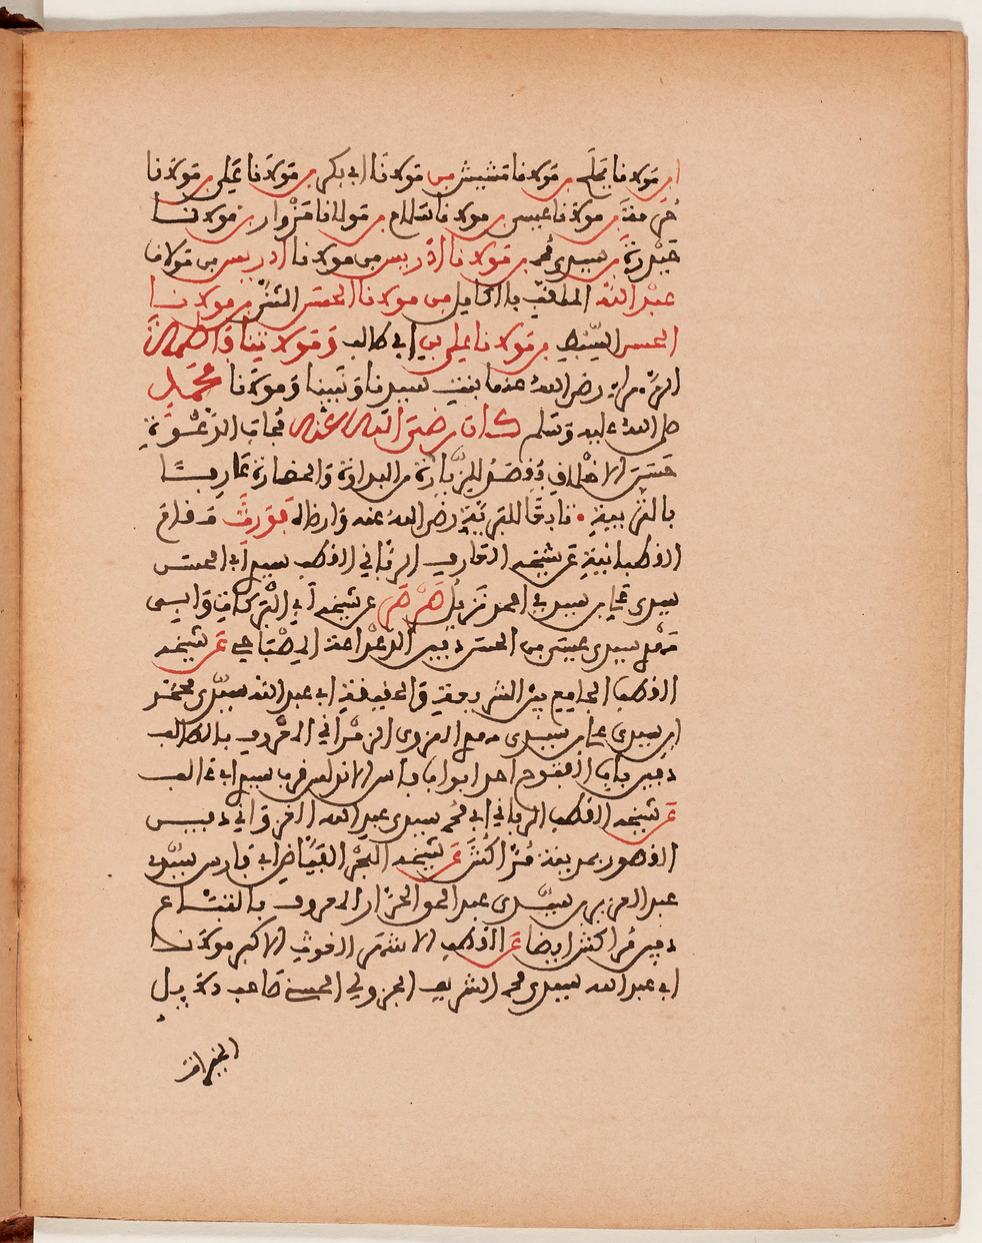 ابن مولانا يملح بن مولانا مشيش بن مولانا ابي بكر بن مولانا علي بن مولانا
حرمة بن مولانا عيسى بن مولانا سلام بن مولانا مزوار بن مولانا
حيدرة بن سيدي محمد بن مولانا ادريس بن مولانا ادريس بن مولانا
عبد الله الملقب بالكامل بن مولانا الحسن المثنى بن مولانا
الحسن السبط بن مولانا علي بن ابي طالب ومولاتنا فاطمة
الزهراء رضي الله عنهما بنت سيدنا ونبينا ومولانا محمد
صلى الله عليه وسلم كان رضي الله عنه مجاب الدعوة
حسن الاخلاق يقصد للزيارة من البداوة والحضارة عارفا
بالتربية نابعا للتربية رضي الله عنه وارضاه فورث مقام
القطبانية عن شيخه العارف الرباني القطب سيدي ابي الحسن
سيدي علي بن سيدي احمد نزيل صرصر عن شيخه ابي البركات وابي
مهدي سيدي عيسى بن الحسن دفين الدعداعة المصباحي عن شيخه
القطب الجامع بين الشريعة والحقيقة ابي عبد الله سيدي محمد
ابن سيدي علي بن سيدي مهدي الهروي الزمراني المعروف بالطالب
دفين باب الفتوح احد ابواب فاس الاندلس قرب سيدي ابي غالب
عن شيخه القطب الرباني ابي محمد سيدي عبد الله الغزواني دفين
القصور بمدينة مراكش عن شيخه البحر الفياض ابي فارس سيدي
عبد العزيز بن سيدي عبد الحق الحرار المعروف بالتباع
دفين مراكش ايضا عن القطب الاشهر الغوث الاكبر مولانا
ابي عبد الله سيدي محمد الشريف الجزولي الحسني صاحب دلائل
الخيرات